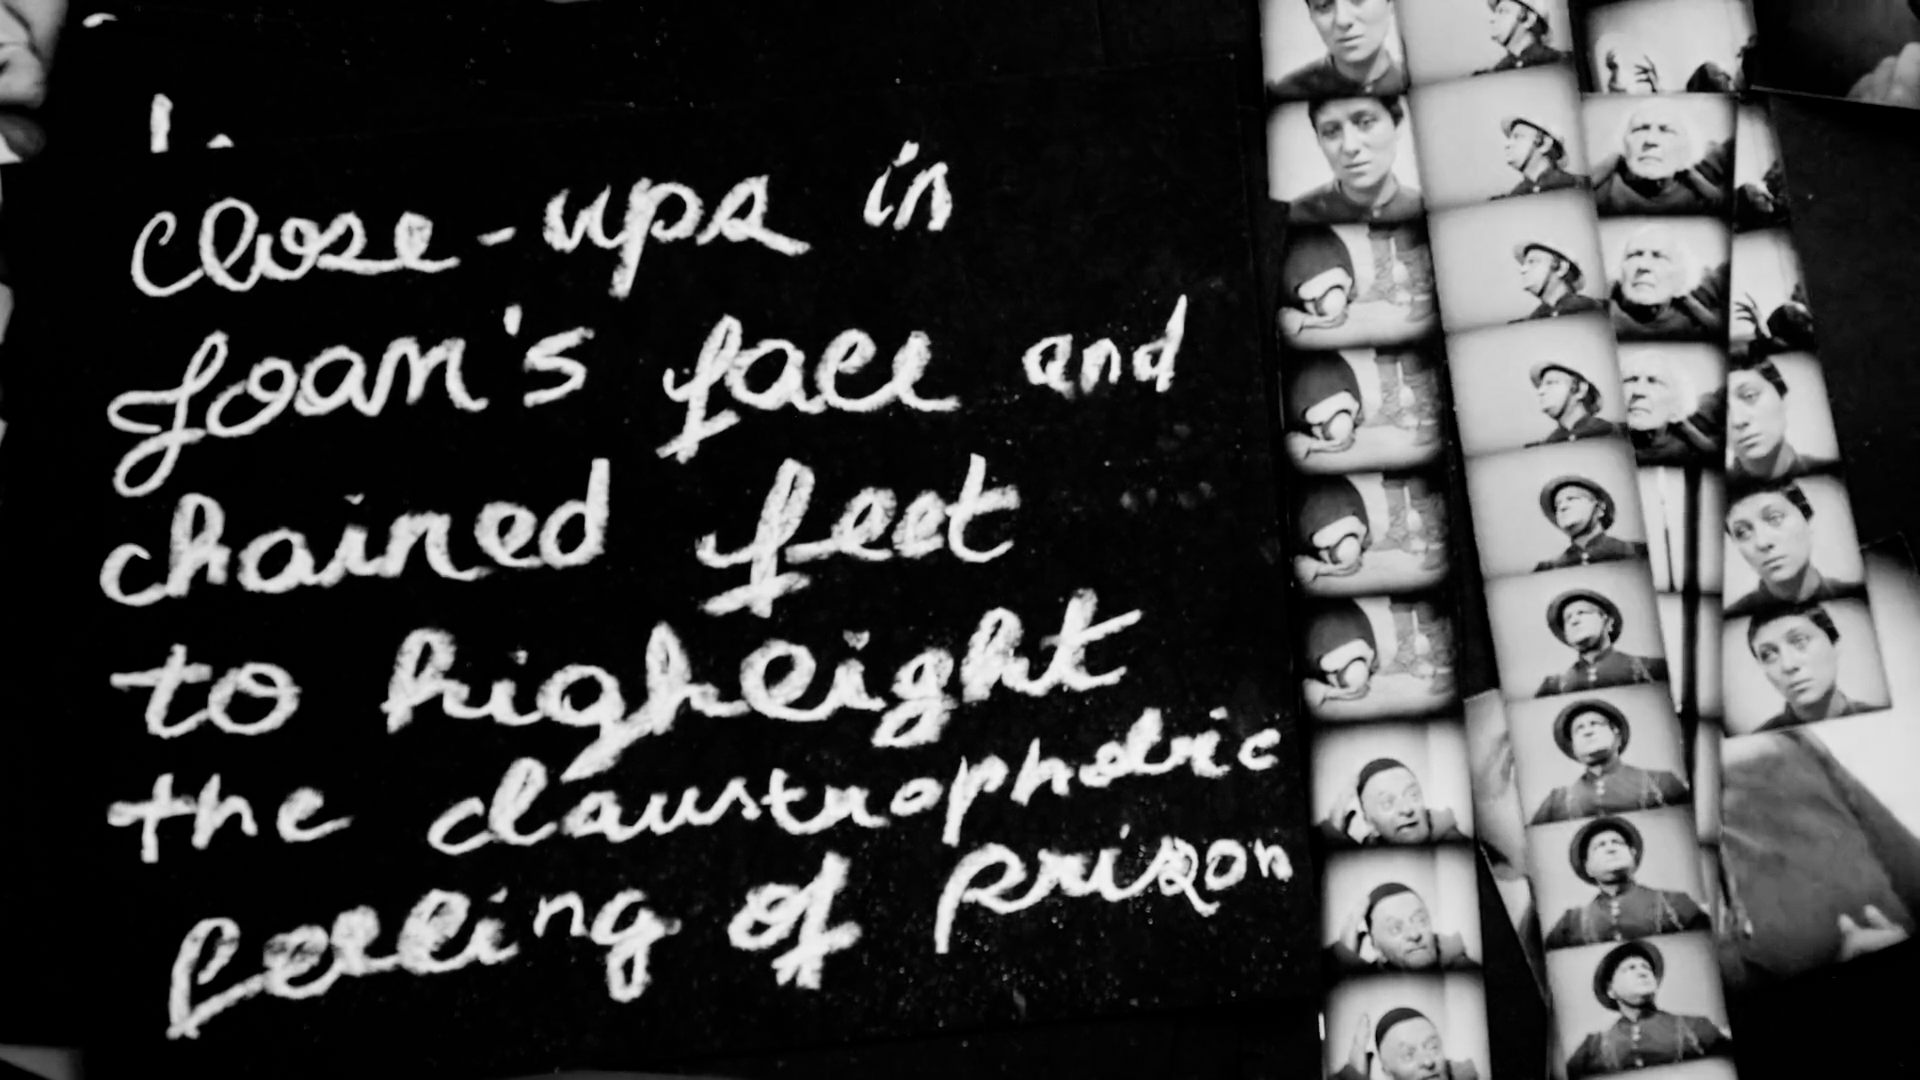 1.
Close-ups in
Joan's face and
chained feet
to highleight
the claustrophobic
feeling of prizon